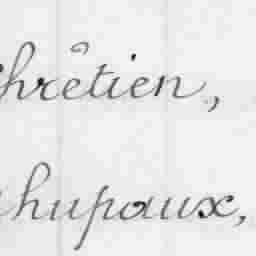 Chrêtien,
hupaux,